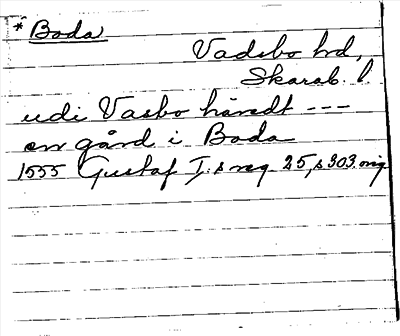 * Boda
Vadsbo hd,
Skarab. l.
udi Vasbo häredt ---
en gård i Boda
1555 Gustaf I:s reg. 25, s 303. orig.